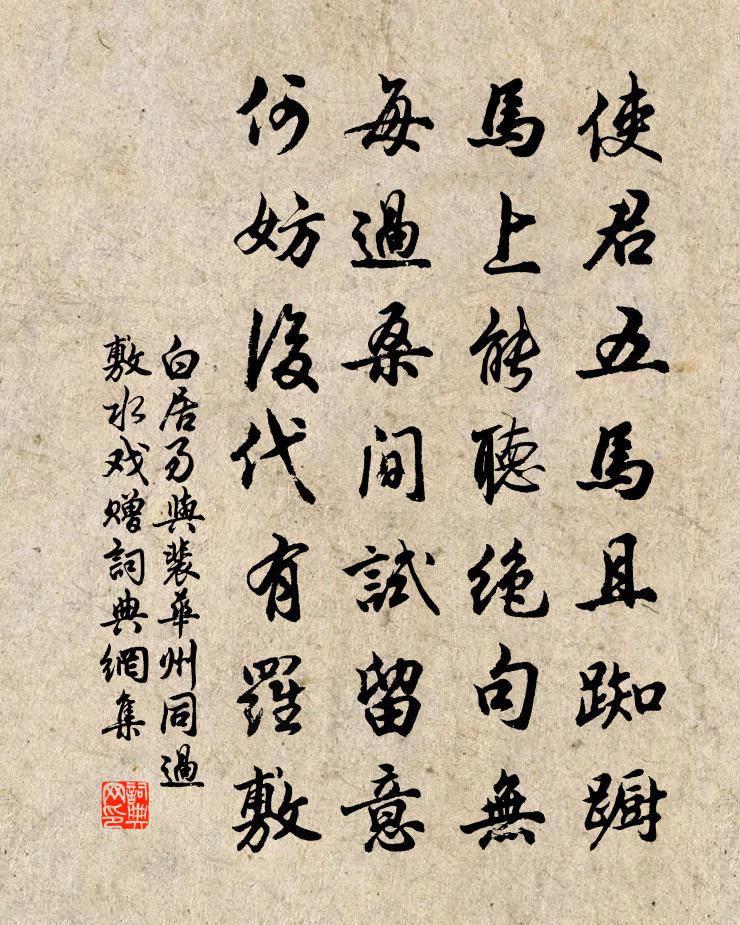 使君五馬且踟躕
馬上能聽絶句無
每過桑間試留意
何妨後代有羅敷
白居易與裴華州同過
敷水戏赠詞典網集
詞典网印